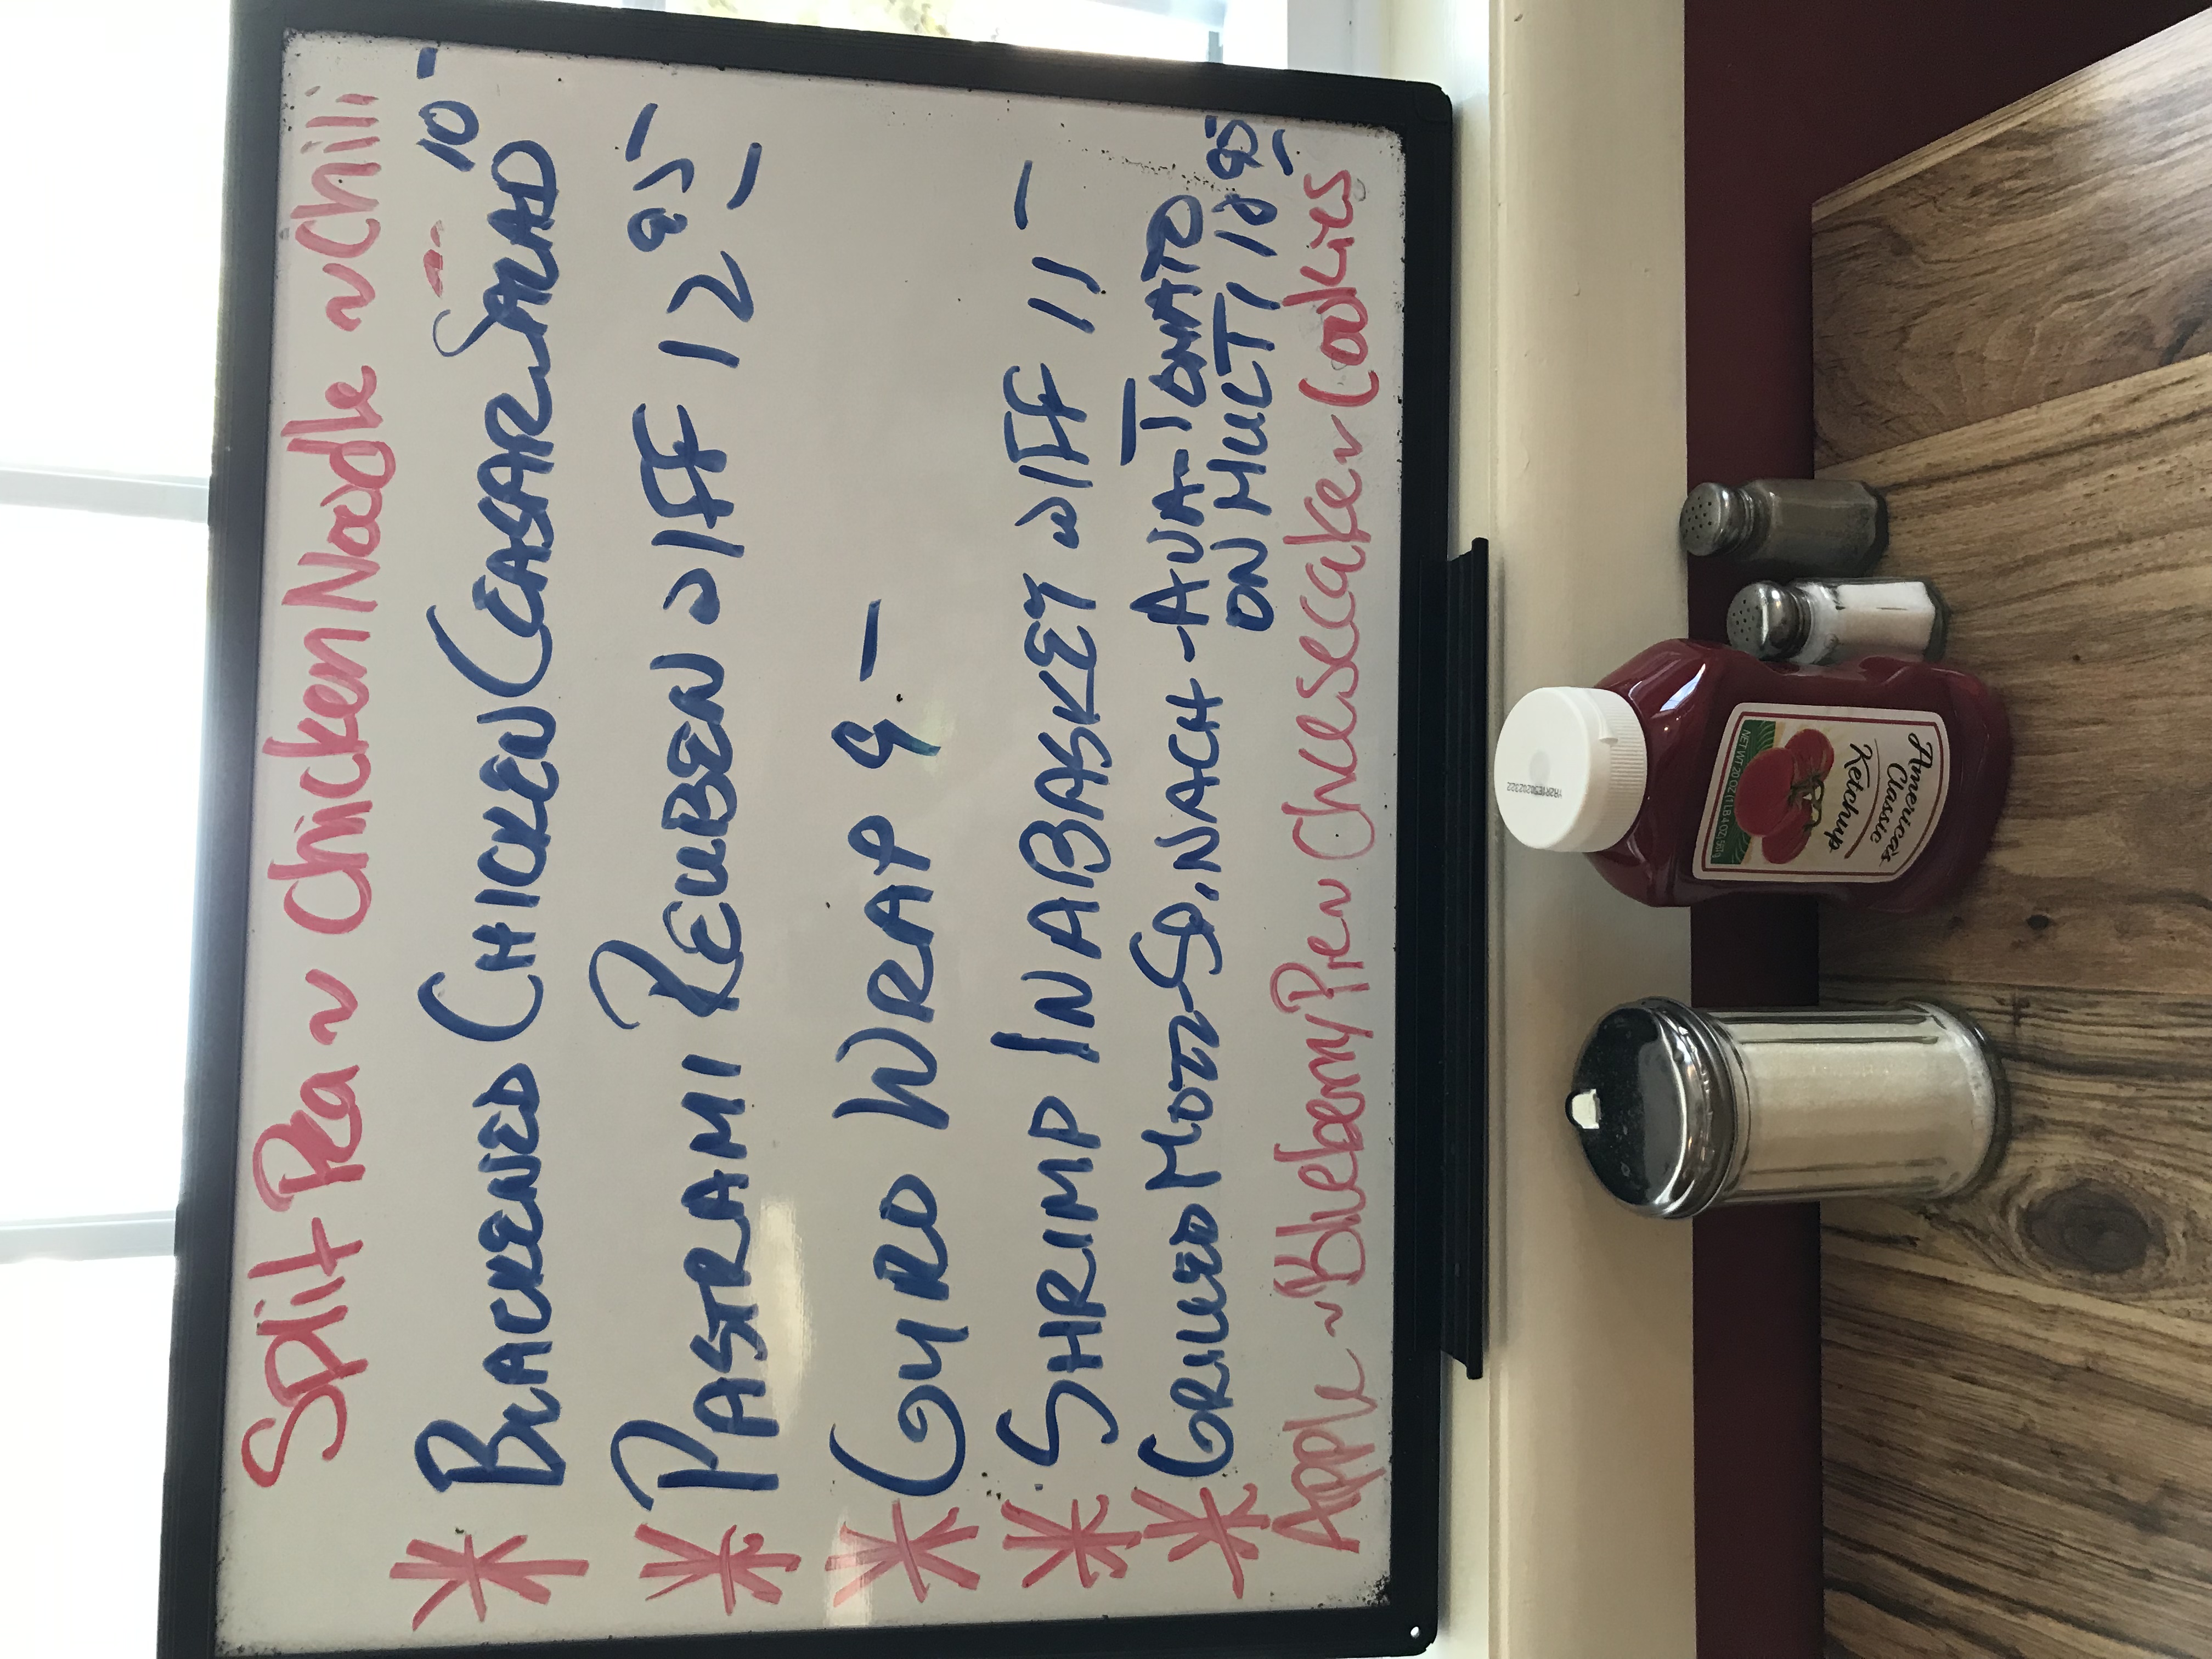 Split Pea ~ Chicken Noodle ~ Chili
* BLACKENED CHICKEN CEASAR SALAD 10-
* PASTRAMI REUBEN w/FF 12 95
* GYRO WRAP 9-
* SHRIMP IN A BASKET w/FF 11-
* GRILLED MOZZ-SPINACH-AVA-TOMATO
ON MULTI 10 95
Apple ~ Blueberry Pie ~ Cheesecake ~ Cookies
America's
Classic
Ketchup
NET WT 20 OZ (1 LB 4 OZ) 567g